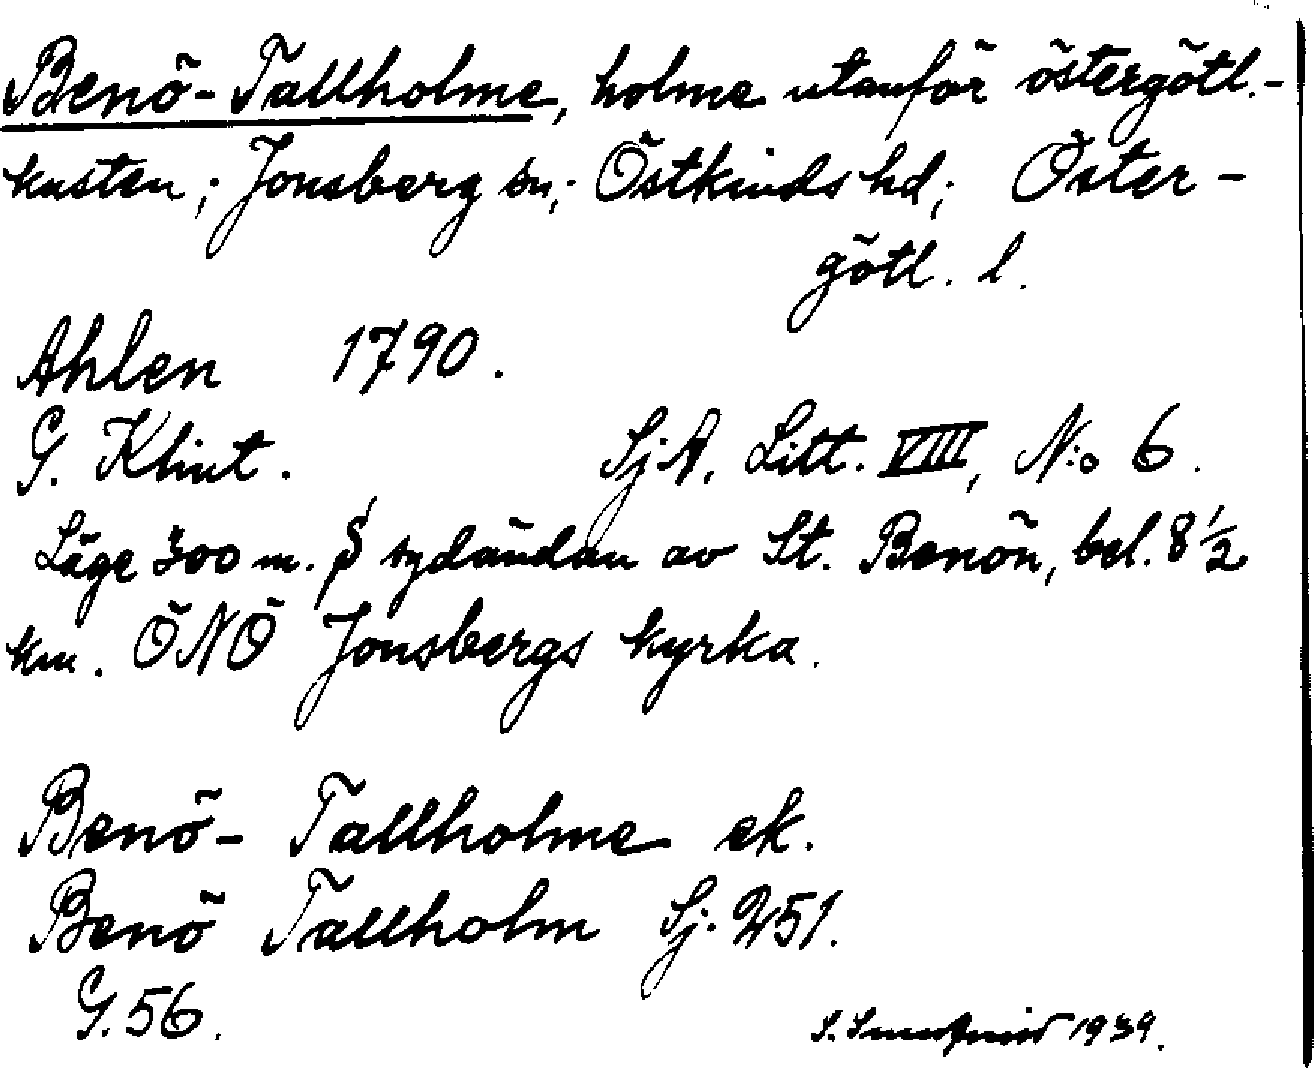 Benö-Tallholme, holme utanför östergötl.-
kusten; Jonsberg sn; Östkinds hd; Öster-
götl. l.
Ahlen 1790.
G. Klint. SjA. Litt. VIII, N:o 6.
Läge 300 m. S sydändan av St. Benön, bel. 8 1/2
km. ÖNÖ Jonsbergs kyrka.
Benö- Tallholme ek.
Benö Tallholm Sj. 251.
G. 56.
S. 1939.